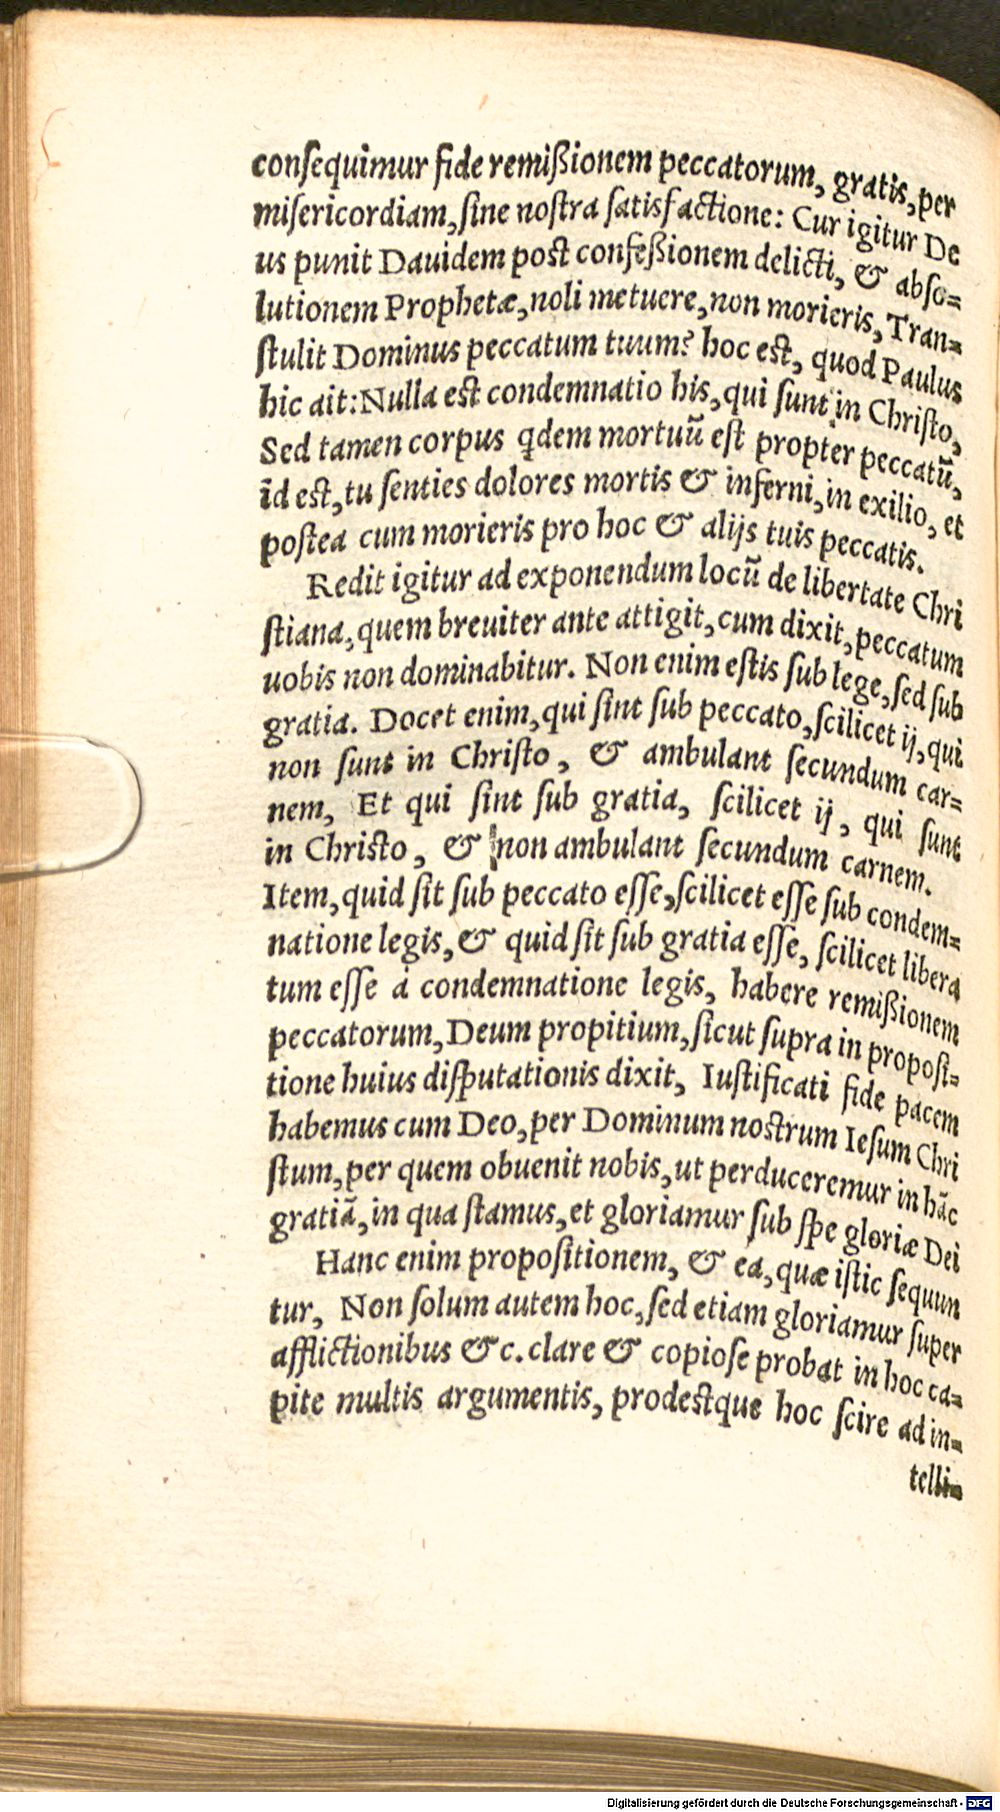 conſequimur fide remißionem peccatorum, gratis, per
miſericordiam, ſine noſtra ſatisfactione: Cur igitur De
us punit Dauidem post confeßionem delicti, & abſo=
lutionem Prophetæ, noli metuere, non morieris, Tran=
ſtulit Dominus peccatum tuum? hoc est, quod Paulus
hic ait: Nulla est condemnatio his, qui ſunt in Chriſto,
Sed tamen corpus qdem mortuũ eſt propter peccatũ,
id est, tu ſenties dolores mortis & inferni, in exilio, et
poſtea cum morieris pro hoc & alijs tuis peccatis.
Redit igitur ad exponendum locũ de libertate Chri
ſtiana, quem breuiter ante attigit, cum dixit, peccatum
uobis non dominabitur. Non enim eſtis ſub lege, ſed ſub
gratia. Docet enim, qui ſint ſub peccato, ſcilicet ij, qui
non ſunt in Chriſto, & ambulant ſecundum car=
nem, Et qui ſint ſub gratia, ſcilicet ij, qui ſunt
in Christo, & non ambulant ſecundum carnem.
Item, quid ſit ſub peccato eſſe, ſcilicet eſſe ſub condem=
natione legis, & quid ſit ſub gratia eſſe, ſcilicet libera
tum eſſe à condemnatione legis, habere remißionem
peccatorum, Deum propitium, ſicut ſupra in propoſi=
tione huius diſputationis dixit, Iuſtificati fide pacem
habemus cum Deo, per Dominum nostrum Ieſum Chri
ſtum, per quem obuenit nobis, ut perduceremur in hãc
gratiã, in qua ſtamus, et gloriamur ſub ſpe gloriæ Dei
Hanc enim propoſitionem, & ea, quæ iſtic ſequun
tur, Non ſolum autem hoc, ſed etiam gloriamur ſuper
afflictionibus &c. clare & copioſe probat in hoc ca=
pite multis argumentis, prodestque hoc ſcire ad in=
telli=
Digitalisierung gefördert durch die Deutsche Forschungsgemeinschaft - DFG